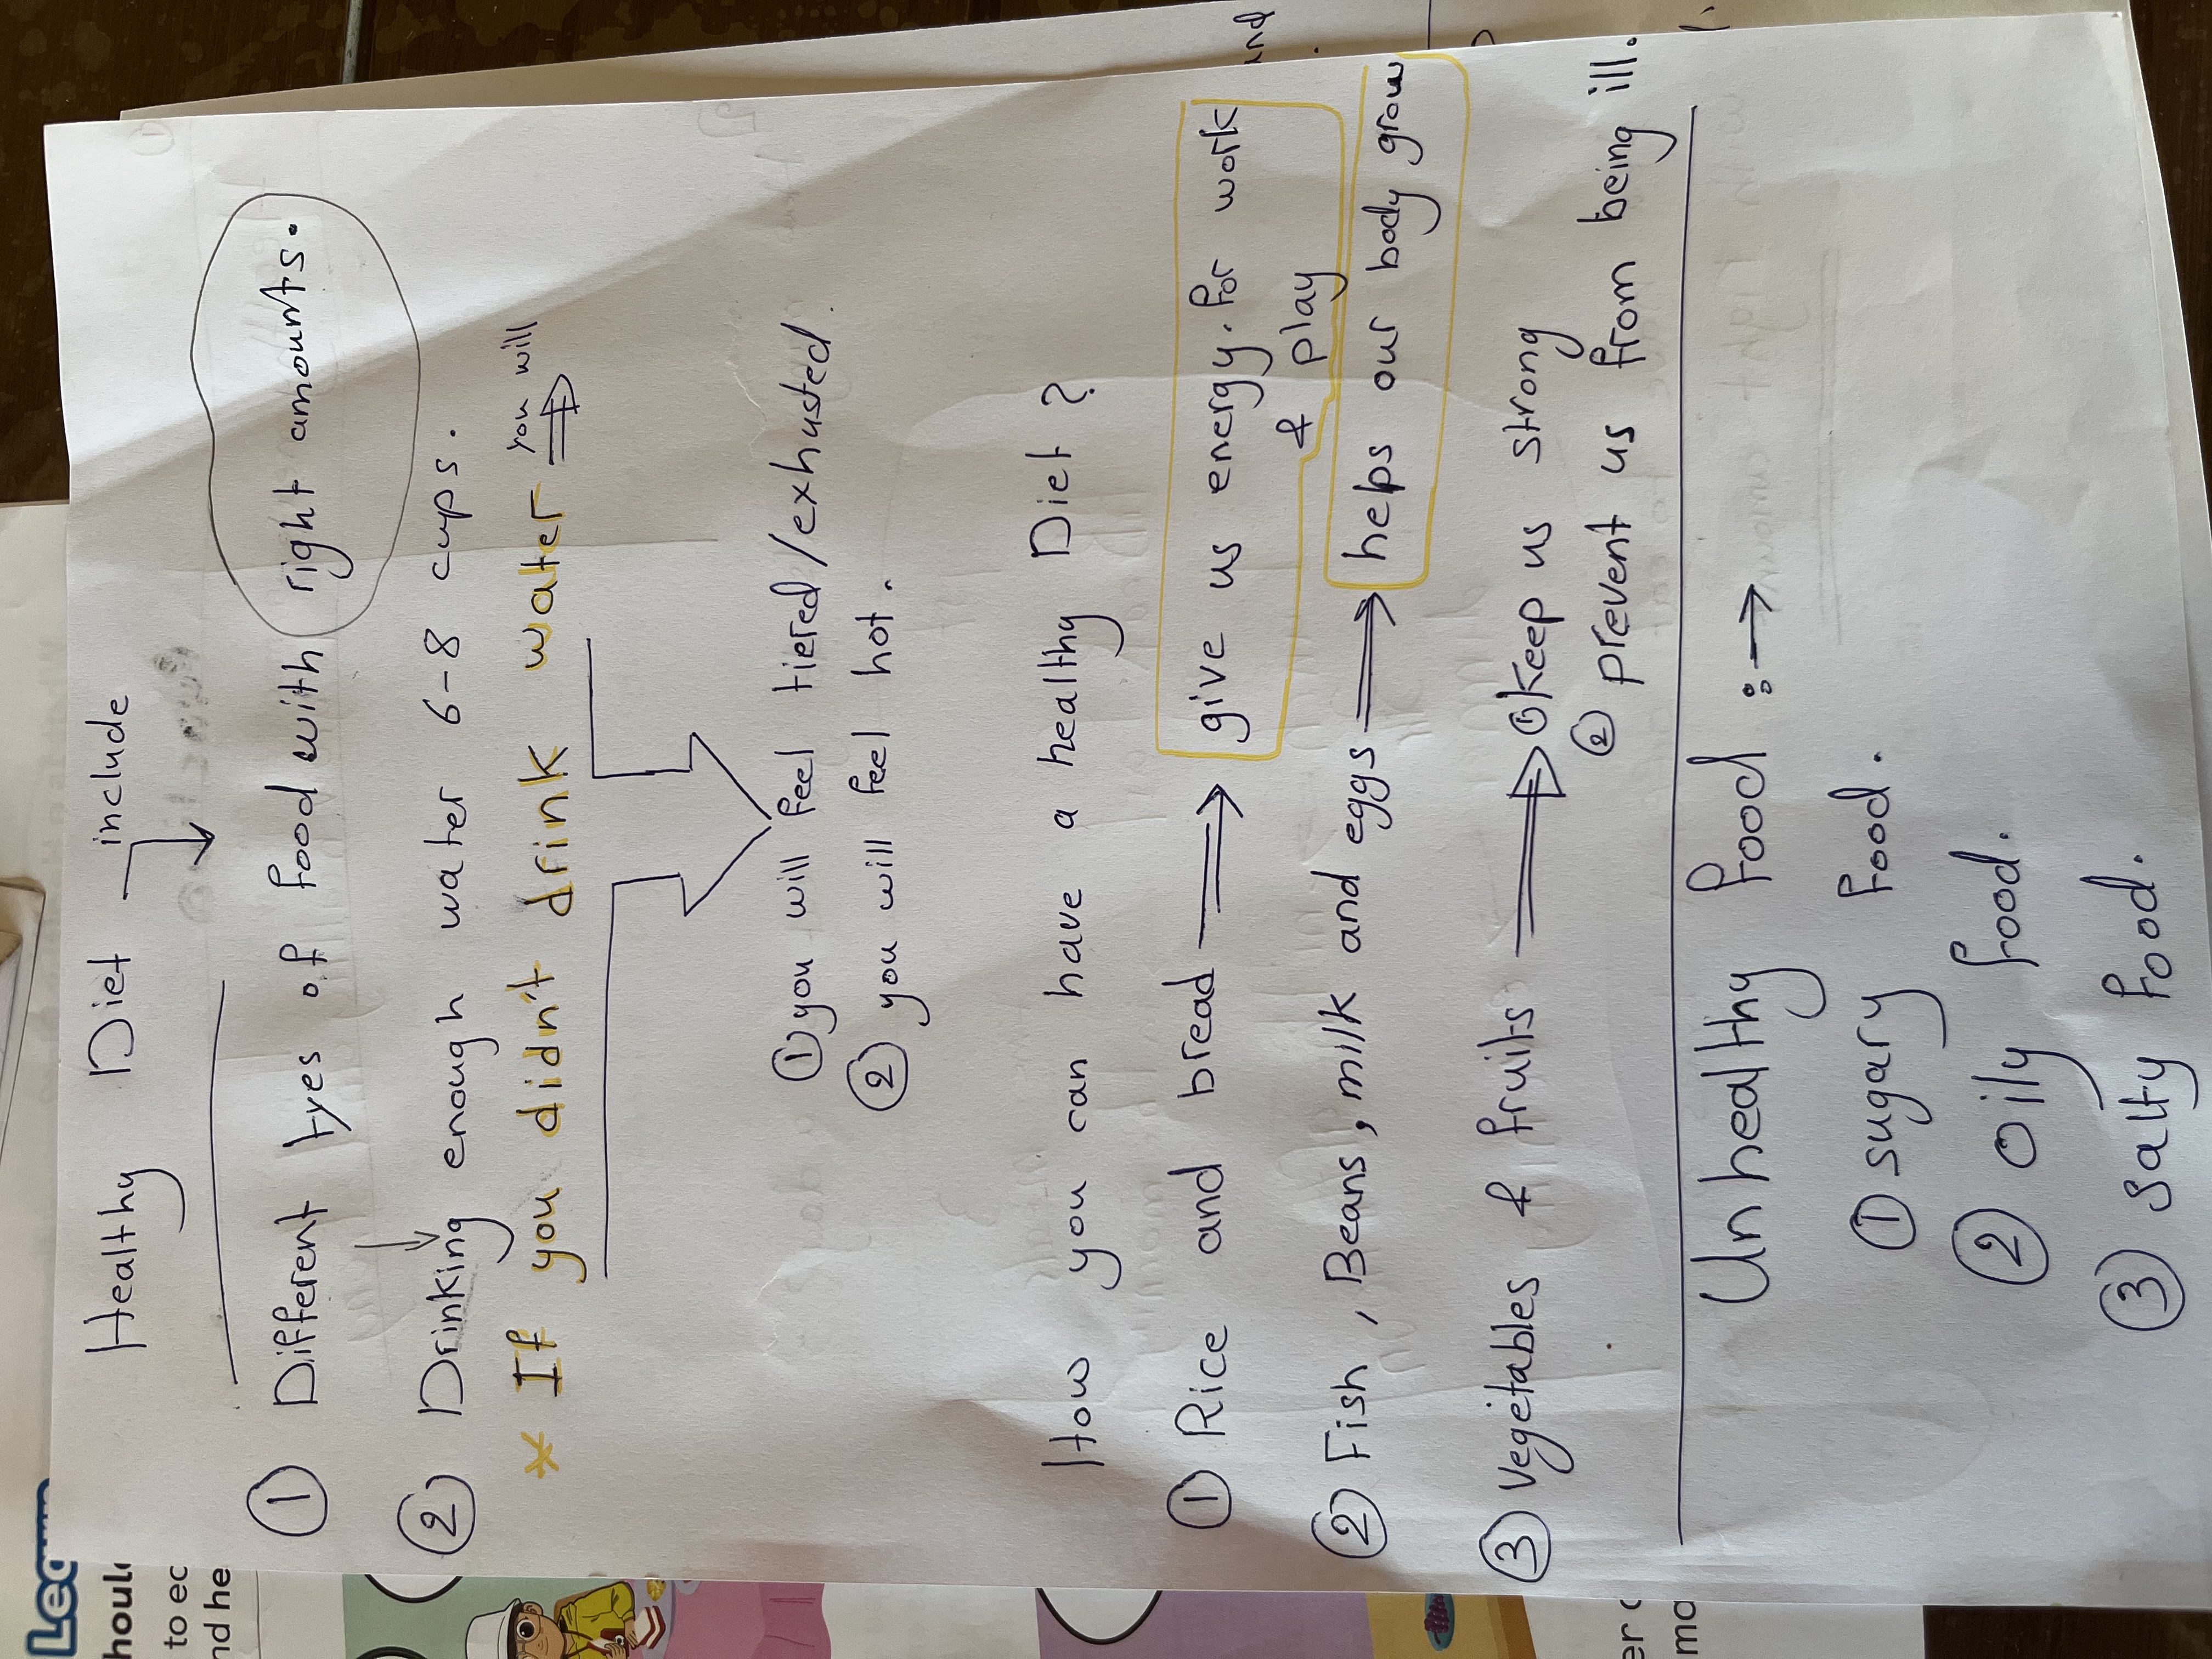 Healthy Diet include
① Different tyes of food with right amounts.
② Drinking enough water 6-8 cups.
* If you didn't drink water you will
① you will feel tiered/exhusted.
② you will feel hot.
How you can have a healthy Diet?
① Rice and bread → give us energy. for work
& play
② Fish, Beans, milk and eggs → helps our body grow
③ Vegetables & fruits → ① keep us strong
② prevent us from being ill.
Unhealthy food :→
① sugary food.
② oily food.
③ salty food.
Learn
to ec
nd he
and
er c